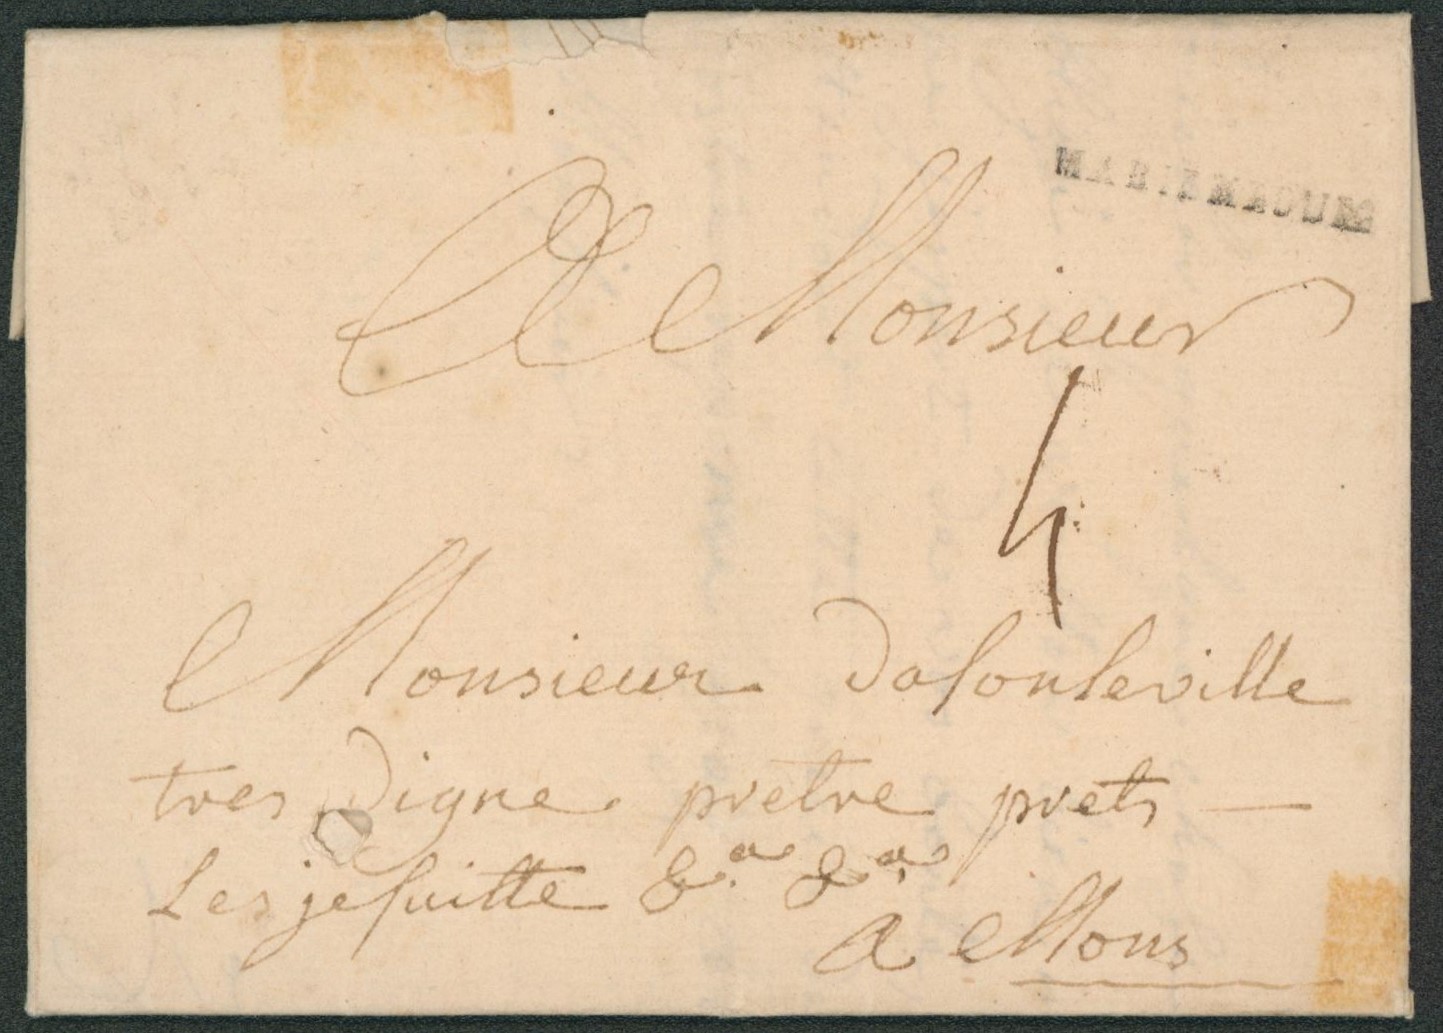 MARIENBOURG
A Monsieur
4
Monsieur Dasonleville
tres Digne pretre prets
Les jesuitte &a &a
a Mons